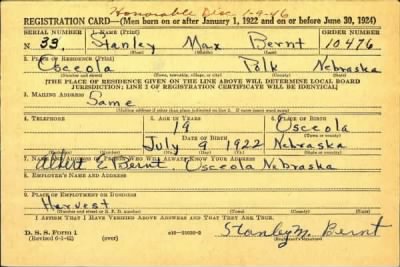 Honorable Disc 1-9-46
REGISTRATION CARD—(Men born on or after January 1, 1922 and on or before June 30, 1924)
SERIAL NUMBER 1. NAME (Print) ORDER NUMBER
N 33, Stanley Max Bernt 10476
(First) (Middle) (Last)
2. PLACE OF RESIDENCE (Print)
Osceola Polk Nebraska
(Number and street) (Town, township, village, or city) (County) (State)
[THE PLACE OF RESIDENCE GIVEN ON THE LINE ABOVE WILL DETERMINE LOCAL BOARD
JURISDICTION; LINE 2 OF REGISTRATION CERTIFICATE WILL BE IDENTICAL]
3. MAILING ADDRESS
Same
(Mailing address if other than place indicated on line 2. If same insert word same)
4. TELEPHONE 5. AGE IN YEARS 6. PLACE OF BIRTH
19 Osceola
DATE OF BIRTH (Town or county)
July 9 1922 Nebraska
(Exchange) (Number) (Mo.) (Day) (Yr.) (State or country)
7. NAME AND ADDRESS OF PERSON WHO WILL ALWAYS KNOW YOUR ADDRESS
E Bernt. Osceola Nebraska
8. EMPLOYER'S NAME AND ADDRESS
9. PLACE OF EMPLOYMENT OR BUSINESS
Harvest
(Number and street or R. F. D. number) (Town) (County) (State)
I AFFIRM THAT I HAVE VERIFIED ABOVE ANSWERS AND THAT THEY ARE TRUE.
D. S. S. Form 1
(Revised 6-1-42) (over) Stanley M. Bernt
(Registrant's signature)